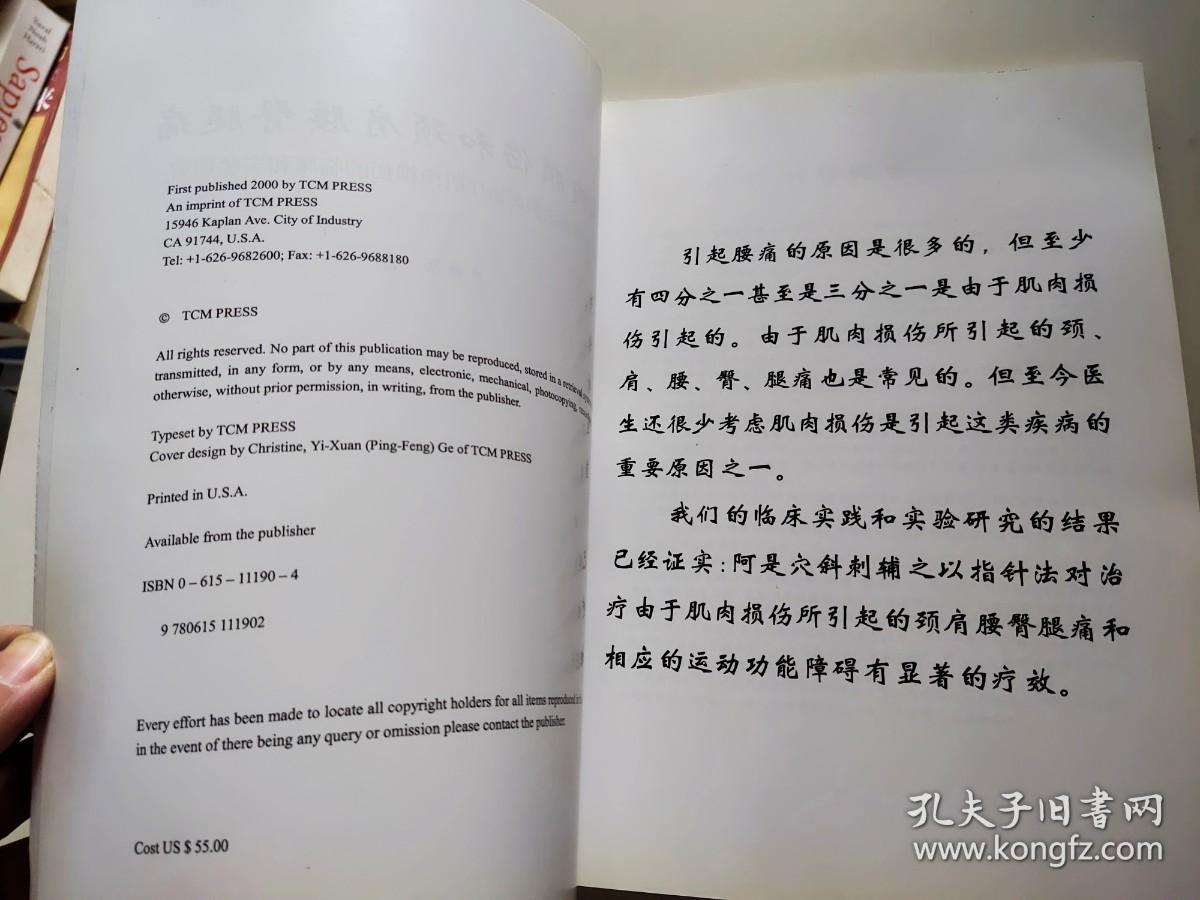 Yuval
Noah
Harari
First published 2000 by TCM PRESS
An imprint of TCM PRESS
15946 Kaplan Ave. City of Industry
CA 91744, U.S.A.
Tel: +1-626-9682600; Fax: +1-626-9688180
© TCM PRESS
All rights reserved. No part of this publication may be reproduced, stored in a retrieval
transmitted, in any form, or by any means, electronic, mechanical, photocopying,
otherwise, without prior permission, in writing, from the publisher.
Typeset by TCM PRESS
Cover design by Christine, Yi-Xuan (Ping-Feng) Ge of TCM PRESS
Printed in U.S.A.
Available from the publisher
ISBN 0-615-11190-4
9 780615 111902
Every effort has been made to locate all copyright holders for all items reproduced
in the event of there being any query or omission please contact the publisher.
Cost US $ 55.00
引起腰痛的原因是很多的，但至少
有四分之一甚至是三分之一是由于肌肉损
伤引起的。由于肌肉损伤所引起的颈、
肩、腰、臀、腿痛也是常见的。但至今医
生还很少考虑肌肉损伤是引起这类疾病的
重要原因之一。
我们的临床实践和实验研究的结果
已经证实：阿是穴斜刺辅之以指针法对治
疗由于肌肉损伤所引起的颈肩腰臀腿痛和
相应的运动功能障碍有显著的疗效。
孔夫子旧书网
www.kongfz.com